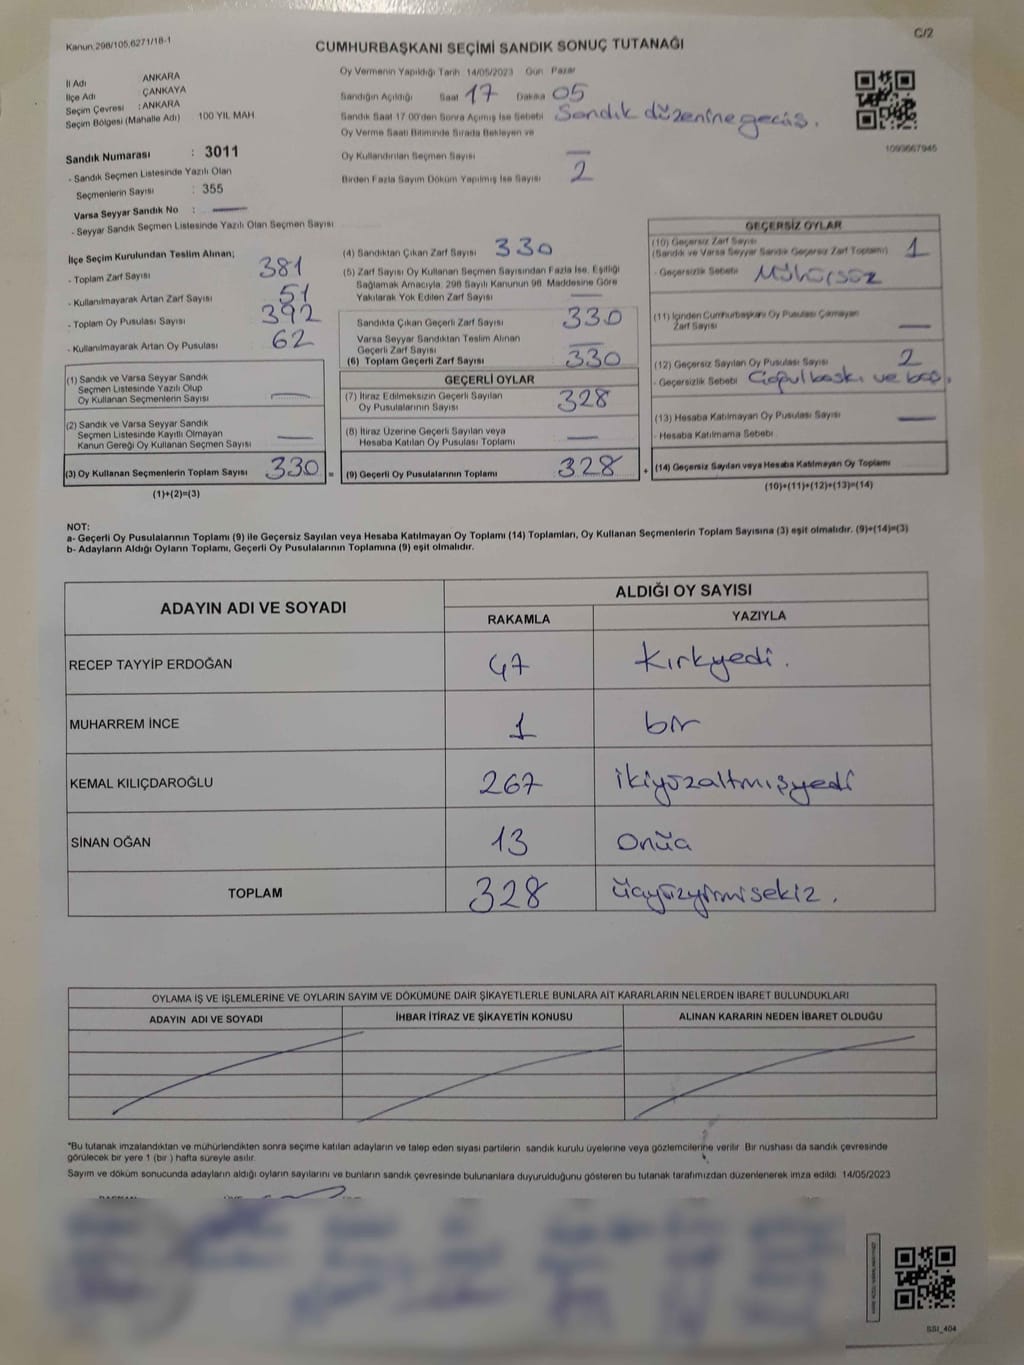 Kanun,298/105,6271/18-1
C/2
CUMHURBAŞKANI SEÇİMİ SANDIK SONUÇ TUTANAĞI
İl Adı ANKARA
İlçe Adı ÇANKAYA
Seçim Çevresi : ANKARA
Seçim Bölgesi (Mahalle Adı) 100 YIL MAH
Sandık Numarası : 3011
- Sandık Seçmen Listesinde Yazılı Olan
Seçmenlerin Sayısı : 355
Varsa Seyyar Sandık No : —
- Seyyar Sandık Seçmen Listesinde Yazılı Olan Seçmen Sayısı
Oy Vermenin Yapıldığı Tarih 14/05/2023 Gün Pazar
Sandığın Açıldığı Saat 17 Dakika 05
Sandık Saat 17.00'den Sonra Açılmış İse Sebebi Sandık düzenine geçiş.
Oy Verme Saati Bitiminde Sırada Bekleyen ve
Oy Kullandırılan Seçmen Sayısı —
Birden Fazla Sayım Döküm Yapılmış İse Sayısı 2
1093667945
İlçe Seçim Kurulundan Teslim Alınan;
- Toplam Zarf Sayısı 381
- Kullanılmayarak Artan Zarf Sayısı 51
- Toplam Oy Pusulası Sayısı 392
- Kullanılmayarak Artan Oy Pusulası 62
(1) Sandık ve Varsa Seyyar Sandık
Seçmen Listesinde Yazılı Olup
Oy Kullanan Seçmenlerin Sayısı —
(2) Sandık ve Varsa Seyyar Sandık
Seçmen Listesinde Kayıtlı Olmayan
Kanun Gereği Oy Kullanan Seçmen Sayısı —
(3) Oy Kullanan Seçmenlerin Toplam Sayısı 330 =
(1)+(2)=(3)
(4) Sandıktan Çıkan Zarf Sayısı 330
(5) Zarf Sayısı Oy Kullanan Seçmen Sayısından Fazla İse, Eşitliği
Sağlamak Amacıyla, 298 Sayılı Kanunun 98. Maddesine Göre
Yakılarak Yok Edilen Zarf Sayısı —
Sandıkta Çıkan Geçerli Zarf Sayısı 330
Varsa Seyyar Sandıktan Teslim Alınan
Geçerli Zarf Sayısı —
(6) Toplam Geçerli Zarf Sayısı 330
GEÇERLİ OYLAR
(7) İtiraz Edilmeksizin Geçerli Sayılan
Oy Pusulalarının Sayısı 328
(8) İtiraz Üzerine Geçerli Sayılan veya
Hesaba Katılan Oy Pusulası Toplamı —
(9) Geçerli Oy Pusulalarının Toplamı 328 +
GEÇERSİZ OYLAR
(10) Geçersiz Zarf Sayısı
(Sandık ve Varsa Seyyar Sandık Geçersiz Zarf Toplamı) 1
- Geçersizlik Sebebi Mühürsüz
(11) İçinden Cumhurbaşkanı Oy Pusulası Çıkmayan
Zarf Sayısı —
(12) Geçersiz Sayılan Oy Pusulası Sayısı 2
- Geçersizlik Sebebi ve boş.
(13) Hesaba Katılmayan Oy Pusulası Sayısı —
- Hesaba Katılmama Sebebi
(14) Geçersiz Sayılan veya Hesaba Katılmayan Oy Toplamı
(10)+(11)+(12)+(13)=(14)
NOT:
a- Geçerli Oy Pusulalarının Toplamı (9) ile Geçersiz Sayılan veya Hesaba Katılmayan Oy Toplamı (14) Toplamları, Oy Kullanan Seçmenlerin Toplam Sayısına (3) eşit olmalıdır. (9)+(14)=(3)
b- Adayların Aldığı Oyların Toplamı, Geçerli Oy Pusulalarının Toplamına (9) eşit olmalıdır.
ADAYIN ADI VE SOYADI
ALDIĞI OY SAYISI
RAKAMLA YAZIYLA
RECEP TAYYİP ERDOĞAN 47 kırkyedi.
MUHARREM İNCE 1 bir
KEMAL KILIÇDAROĞLU 267 ikiyüzaltmışyedi
SİNAN OĞAN 13 Onüç
TOPLAM 328 üçyüzyirmisekiz.
OYLAMA İŞ VE İŞLEMLERİNE VE OYLARIN SAYIM VE DÖKÜMÜNE DAİR ŞİKAYETLERLE BUNLARA AİT KARARLARIN NELERDEN İBARET BULUNDUKLARI
ADAYIN ADI VE SOYADI İHBAR İTİRAZ VE ŞİKAYETİN KONUSU ALINAN KARARIN NEDEN İBARET OLDUĞU
*Bu tutanak imzalandıktan ve mühürlendikten sonra seçime katılan adayların ve talep eden siyasi partilerin sandık kurulu üyelerine veya gözlemcilerine verilir. Bir nüshası da sandık çevresinde
görülecek bir yere 1 (bir ) hafta süreyle asılır.
Sayım ve döküm sonucunda adayların aldığı oyların sayılarını ve bunların sandık çevresinde bulunanlara duyurulduğunu gösteren bu tutanak tarafımızdan düzenlenerek imza edildi 14/05/2023
SSI_404